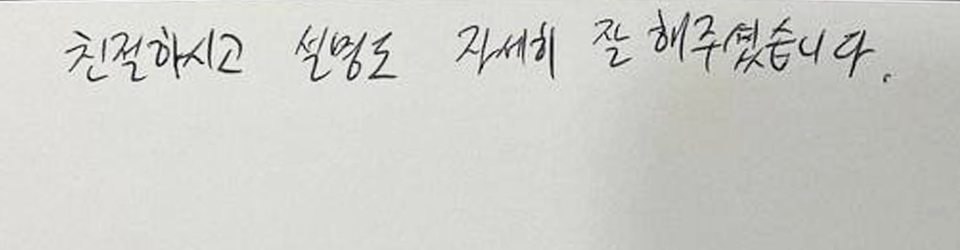 친절하시고 설명도 자세히 잘 해주셨습니다.